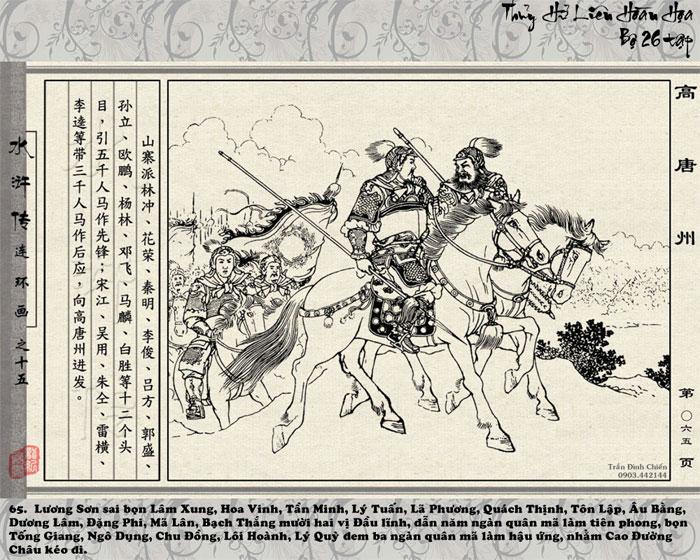 Thủy Hử Liên Hoàn Họa
Bộ 26 tập
高唐州
山寨派林冲、花荣、秦明、李俊、吕方、郭盛、
孙立、欧鹏、杨林、邓飞、马麟、白胜等十二个头
目，引五千人马作先锋；宋江、吴用、朱仝、雷横、
李逵等带三千人马作后应，向高唐州进发。
水浒传连环画之十五
第〇六五页
Trần Đình Chiến
0903.442144
65. Lương Sơn sai bọn Lâm Xung, Hoa Vinh, Tần Minh, Lý Tuấn, Lã Phương, Quách Thịnh, Tôn Lập, Âu Bằng,
Dương Lâm, Đặng Phi, Mã Lân, Bạch Thắng mười hai vị Đầu lĩnh, dẫn năm ngàn quân mã làm tiên phong, bọn
Tống Giang, Ngô Dụng, Chu Đồng, Lôi Hoành, Lý Quỳ đem ba ngàn quân mã làm hậu ứng, nhằm Cao Đường
Châu kéo đi.